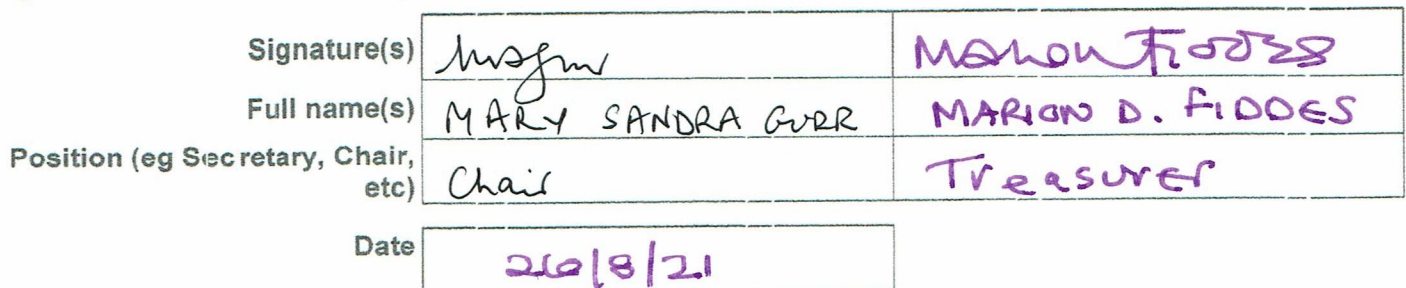 Signature(s) Marion Fiddes
Full name(s) MARY SANDRA GURR MARION D. FIDDES
Position (eg Secretary, Chair, etc) Chair Treasurer
Date 26/8/21